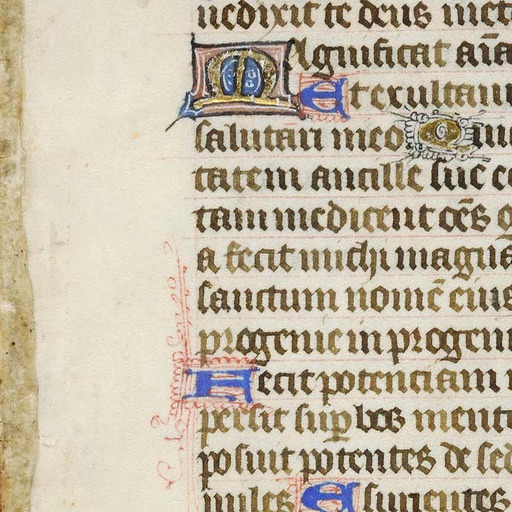 nedixit te deus in et
Magnificat aīa
Et exultaui
salutari meo Qui
tatem ancille sue ec
tam me dicent oēs g
a fecit michi magna
sanctum nomē eius
progenie in progeni
Fecit potenciam i
persit sup̱bos ment
posuit potentes de sed
miles Esurientes